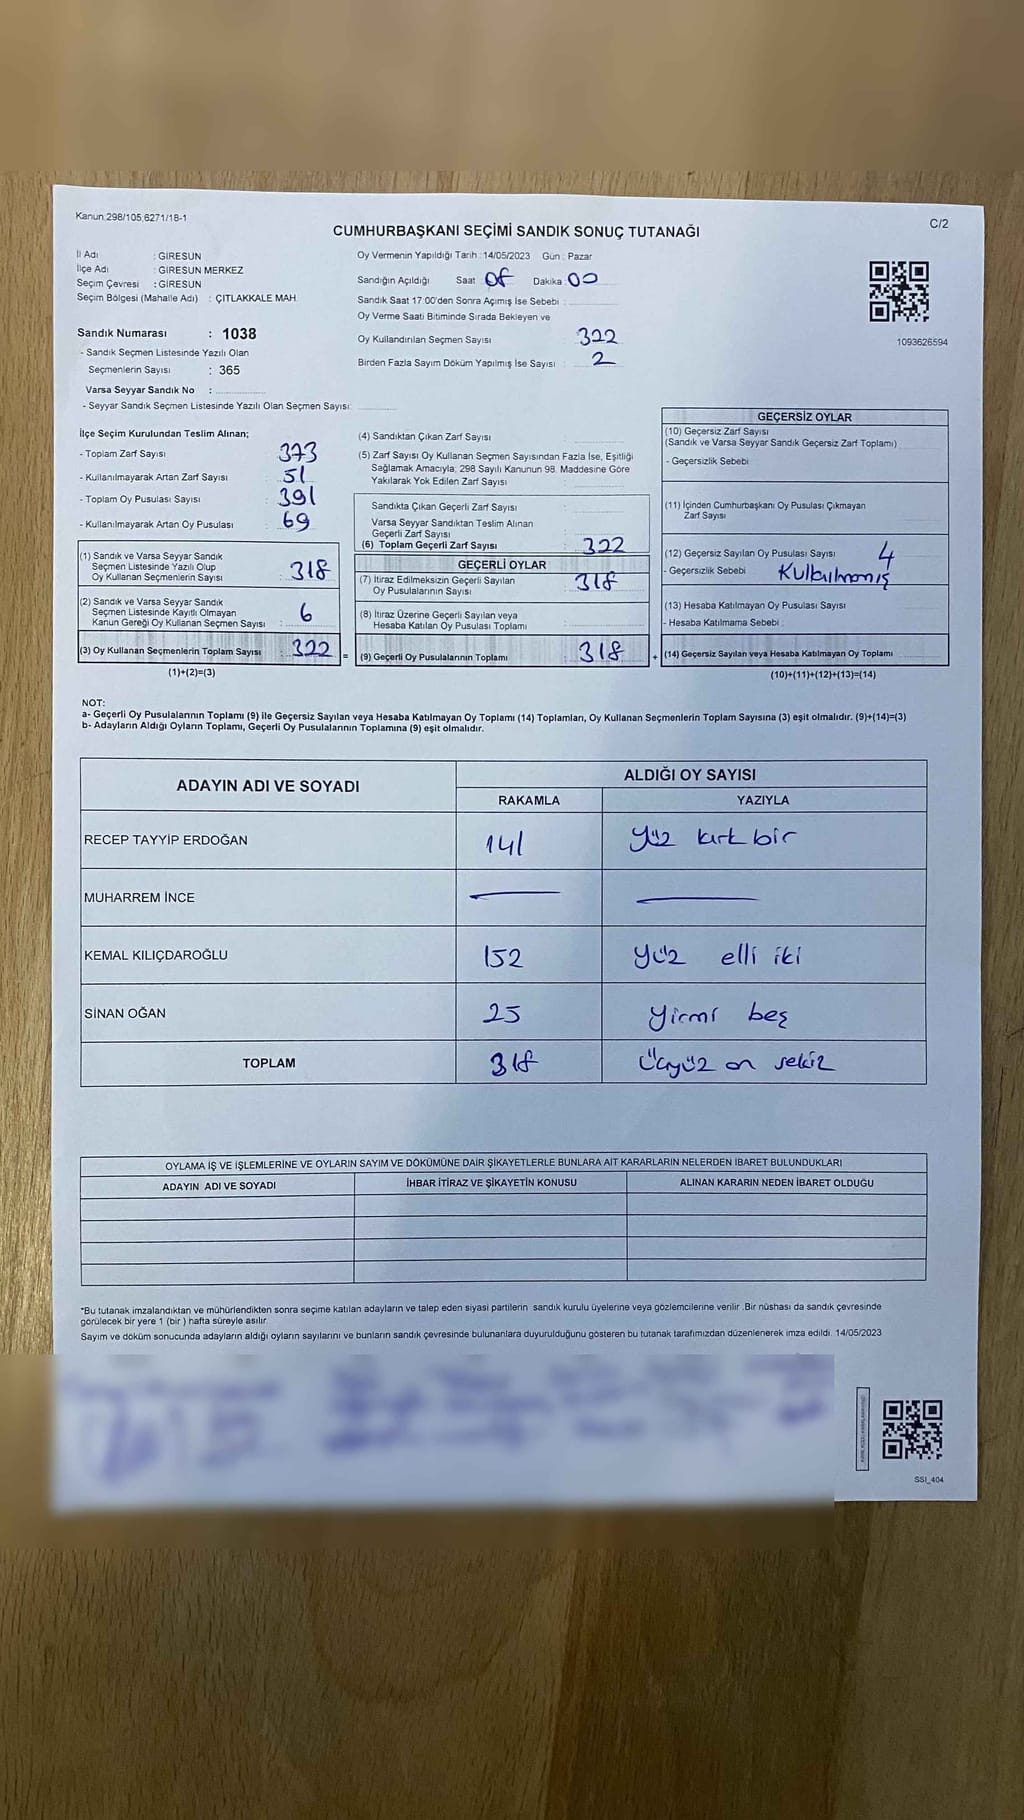 Kanun:298/105;6271/18-1
C/2
CUMHURBAŞKANI SEÇİMİ SANDIK SONUÇ TUTANAĞI
İl Adı : GİRESUN
İlçe Adı : GİRESUN MERKEZ
Seçim Çevresi : GİRESUN
Seçim Bölgesi (Mahalle Adı) : ÇITLAKKALE MAH.
Sandık Numarası : 1038
- Sandık Seçmen Listesinde Yazılı Olan
Seçmenlerin Sayısı : 365
Varsa Seyyar Sandık No :
- Seyyar Sandık Seçmen Listesinde Yazılı Olan Seçmen Sayısı:
Oy Vermenin Yapıldığı Tarih : 14/05/2023 Gün : Pazar
Sandığın Açıldığı Saat 08 Dakika : 00
Sandık Saat 17:00'den Sonra Açımış İse Sebebi :
Oy Verme Saati Bitiminde Sırada Bekleyen ve
Oy Kullandırılan Seçmen Sayısı 322
Birden Fazla Sayım Döküm Yapılmış İse Sayısı : 2
1093626594
İlçe Seçim Kurulundan Teslim Alınan;
- Toplam Zarf Sayısı 373
- Kullanılmayarak Artan Zarf Sayısı 51
- Toplam Oy Pusulası Sayısı 391
- Kullanılmayarak Artan Oy Pusulası 69
(1) Sandık ve Varsa Seyyar Sandık
Seçmen Listesinde Yazılı Olup
Oy Kullanan Seçmenlerin Sayısı : 318
(2) Sandık ve Varsa Seyyar Sandık
Seçmen Listesinde Kayıtlı Olmayan
Kanun Gereği Oy Kullanan Seçmen Sayısı : 6
(3) Oy Kullanan Seçmenlerin Toplam Sayısı : 322 =
(1)+(2)=(3)
(4) Sandıktan Çıkan Zarf Sayısı
(5) Zarf Sayısı Oy Kullanan Seçmen Sayısından Fazla İse, Eşitliği
Sağlamak Amacıyla; 298 Sayılı Kanunun 98. Maddesine Göre
Yakılarak Yok Edilen Zarf Sayısı
Sandıkta Çıkan Geçerli Zarf Sayısı
Varsa Seyyar Sandıktan Teslim Alınan
Geçerli Zarf Sayısı
(6) Toplam Geçerli Zarf Sayısı 322
GEÇERLİ OYLAR
(7) İtiraz Edilmeksizin Geçerli Sayılan
Oy Pusulalarının Sayısı 318
(8) İtiraz Üzerine Geçerli Sayılan veya
Hesaba Katılan Oy Pusulası Toplamı
(9) Geçerli Oy Pusulalarının Toplamı 318 +
GEÇERSİZ OYLAR
(10) Geçersiz Zarf Sayısı
(Sandık ve Varsa Seyyar Sandık Geçersiz Zarf Toplamı)
- Geçersizlik Sebebi
(11) İçinden Cumhurbaşkanı Oy Pusulası Çıkmayan
Zarf Sayısı
(12) Geçersiz Sayılan Oy Pusulası Sayısı 4
- Geçersizlik Sebebi
(13) Hesaba Katılmayan Oy Pusulası Sayısı
- Hesaba Katılmama Sebebi :
(14) Geçersiz Sayılan veya Hesaba Katılmayan Oy Toplamı
(10)+(11)+(12)+(13)=(14)
NOT:
a- Geçerli Oy Pusulalarının Toplamı (9) ile Geçersiz Sayılan veya Hesaba Katılmayan Oy Toplamı (14) Toplamları, Oy Kullanan Seçmenlerin Toplam Sayısına (3) eşit olmalıdır. (9)+(14)=(3)
b- Adayların Aldığı Oyların Toplamı, Geçerli Oy Pusulalarının Toplamına (9) eşit olmalıdır.
ADAYIN ADI VE SOYADI ALDIĞI OY SAYISI
RAKAMLA YAZIYLA
RECEP TAYYİP ERDOĞAN 141 yüz kırk bir
MUHARREM İNCE
KEMAL KILIÇDAROĞLU 152 yüz elli iki
SİNAN OĞAN 25 yirmi beş
TOPLAM 318 üçyüz on sekiz
OYLAMA İŞ VE İŞLEMLERİNE VE OYLARIN SAYIM VE DÖKÜMÜNE DAİR ŞİKAYETLERLE BUNLARA AİT KARARLARIN NELERDEN İBARET BULUNDUKLARI
ADAYIN ADI VE SOYADI İHBAR İTİRAZ VE ŞİKAYETİN KONUSU ALINAN KARARIN NEDEN İBARET OLDUĞU
*Bu tutanak imzalandıktan ve mühürlendikten sonra seçime katılan adayların ve talep eden siyasi partilerin sandık kurulu üyelerine veya gözlemcilerine verilir .Bir nüshası da sandık çevresinde
görülecek bir yere 1 (bir ) hafta süreyle asılır.
Sayım ve döküm sonucunda adayların aldığı oyların sayılarını ve bunların sandık çevresinde bulunanlara duyurulduğunu gösteren bu tutanak tarafımızdan düzenlenerek imza edildi. 14/05/2023
SSI_404